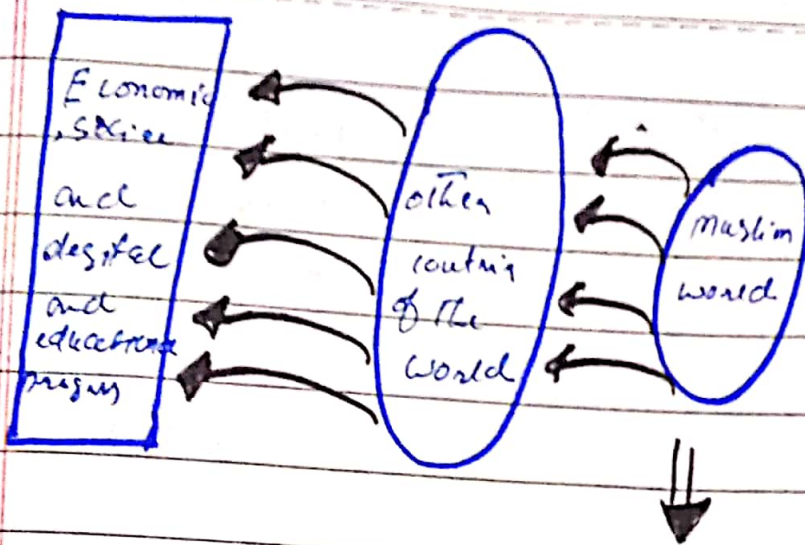 Economic
, Sciee
and
degital
and
educationa
progus
other
coutris
of the
world
muslim
world